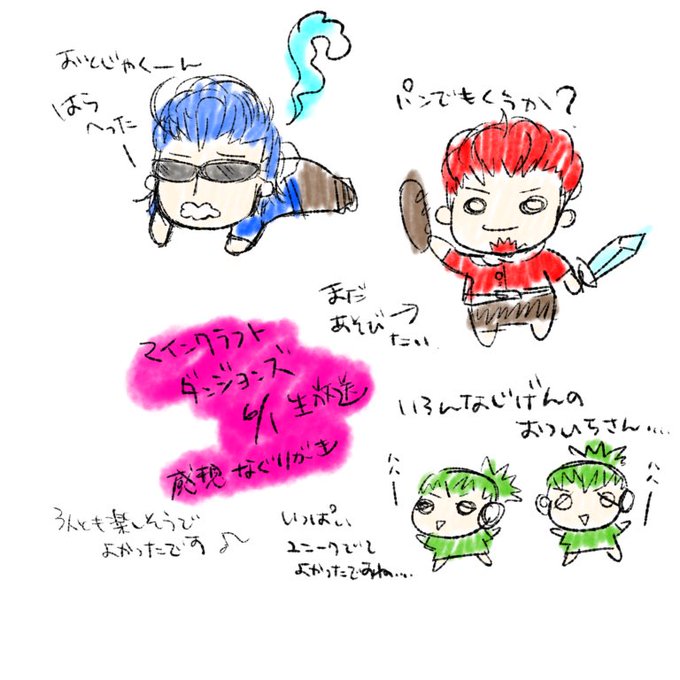 おとじゃくーん
はら
へった
パンでもくうか?
まだ
あそび
たい
マインクラフト
ダンジョンズ
6/1 生放送
感想 なぐりがき
いろんなじげんの
おついちさん....
ハハー
ハハー
3人とも楽しそうで
よかったです♪
いっぱい
ユニークでて
よかったですね...